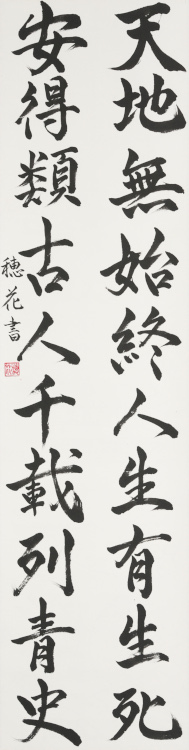 天地無始終人生有生死
安得類古人千載列青史
穂花書